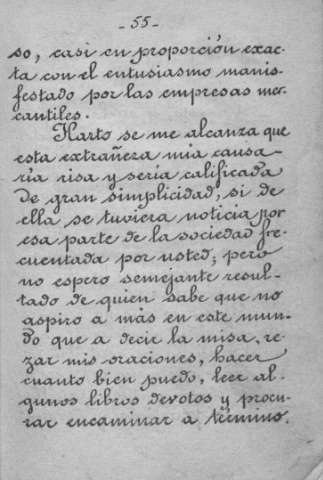 - 55 -
so, casi en proporción exac-
ta con el entusiasmo manis-
festado por las empresas mer-
cantiles.
Harto se me alcanza que
esta extrañeza mia causa-
ría risa y sería calificada
de gran simplicidad, si de
ella se tuviera noticia por
esa parte de la sociedad fre-
cuentada por usted; pero
no espero semejante resul-
tado de quien sabe que no
aspiro a más en este mun-
do que a decir la misa, re-
zar mis oraciones, hacer
cuanto bien puedo, leer al-
gunos libros devotos y procu-
rar encaminar a término.